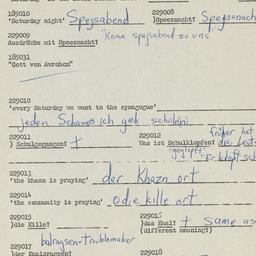 185010 229008
'Saturday night' Spejsabend )Spessnacht? Spejsenach
229009
Ausdrücke mit Spessnacht? "Komm spejsabend zu uns"
185031
"Gott von Avrohom"
229010
'every Saturday we went to the synagogue'
jeden Schawes ich geh schul(n)
229011 229012 früher hat
) Schulgegangen? + Was ist Schulklopfen? die leute
"geklopft" "Er klopft sch
229013
'the khazn is praying' der Khazn ort
229014
'the community is praying' odie kille ort
229015 22901
)die Kille? )das Kaal? + same as
(different meaning?)
balragsene=troublemaker
229017 229018
)der Kaalragsen?